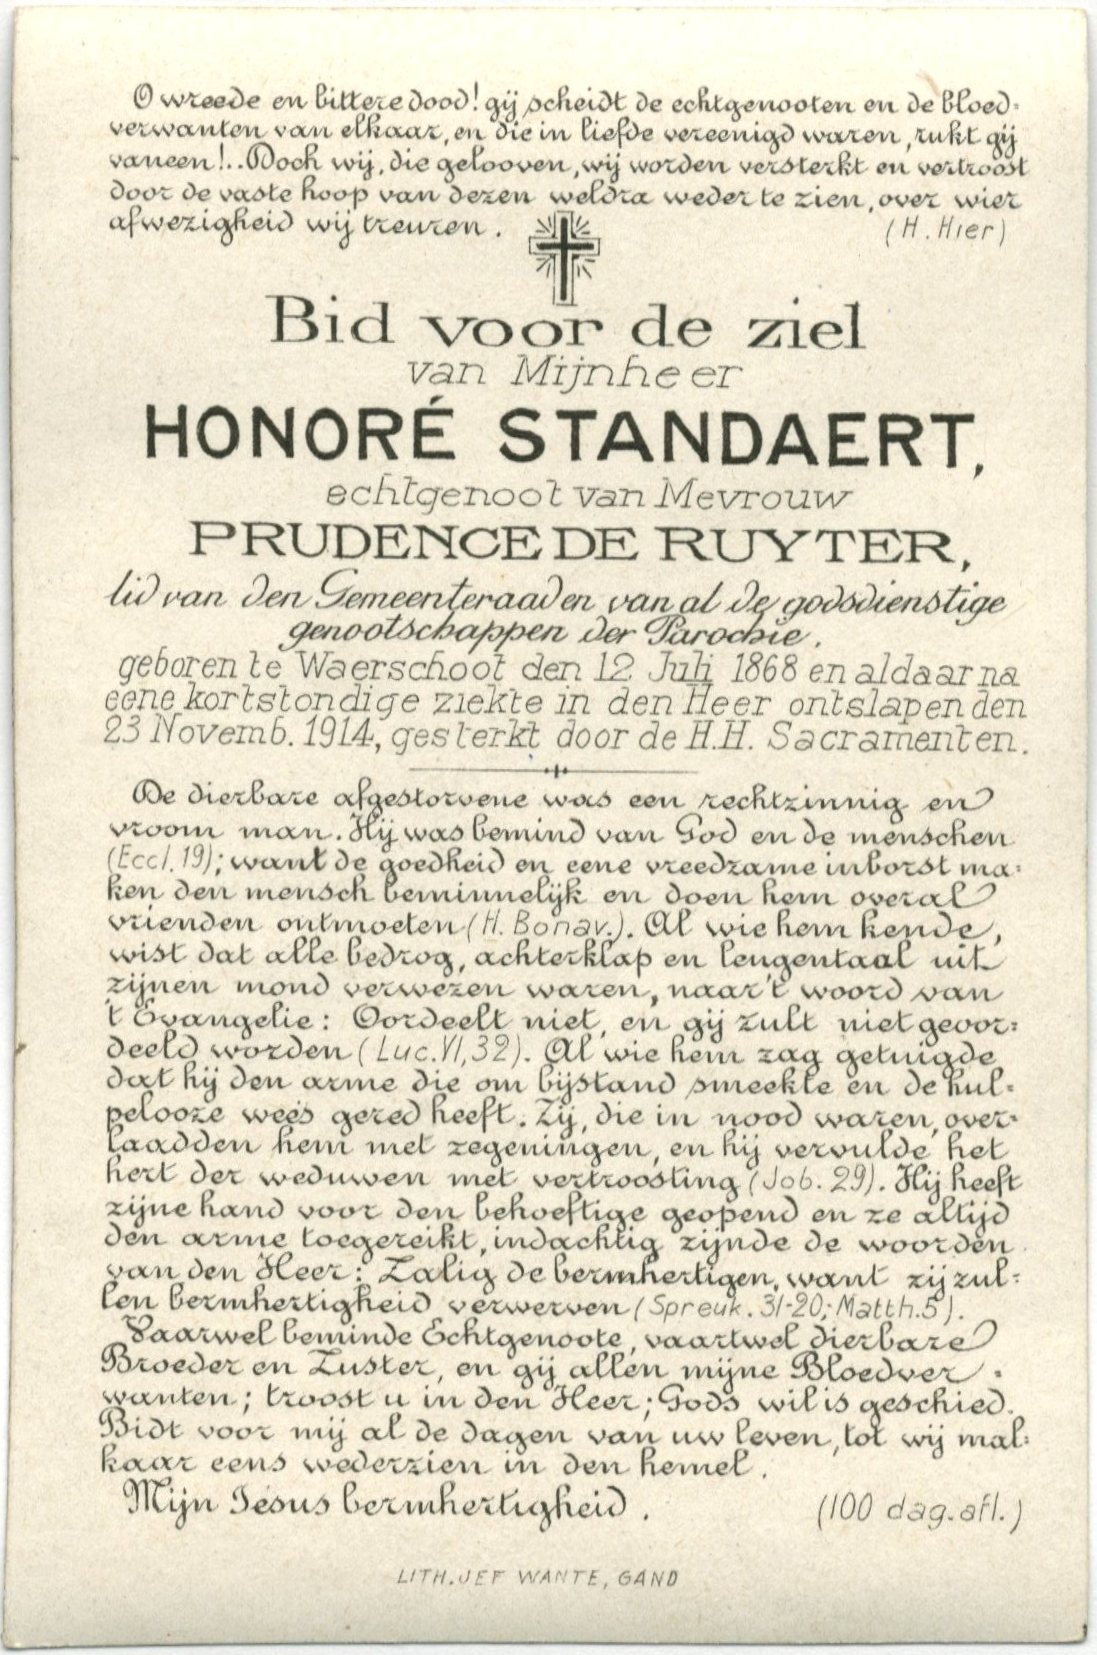 O wreede en bittere dood! gij scheidt de echtgenooten en de bloed-
verwanten van elkaar, en die in liefde vereenigd waren, rukt gij
vaneen!.. Doch wij, die gelooven, wij worden versterkt en vertroost
door de vaste hoop van dezen weldra weder te zien, over wier
afwezigheid wij treuren. (H. Hier)
Bid voor de ziel
van Mijnheer
HONORÉ STANDAERT,
echtgenoot van Mevrouw
PRUDENCE DE RUYTER,
lid van den Gemeenteraad en van al de godsdienstige
genootschappen der Parochie.
geboren te Waerschoot den 12 Juli 1868 en aldaar na
eene kortstondige ziekte in den Heer ontslapen den
23 Novemb. 1914, gesterkt door de H.H. Sacramenten.
De dierbare afgestorvene was een rechtzinnig en
vroom man. Hij was bemind van God en de menschen
(Eccl. 19); want de goedheid en eene vreedzame inborst ma-
ken den mensch beminnelijk en doen hem overal
vrienden ontmoeten (H. Bonav.). Al wie hem kende,
wist dat alle bedrog, achterklap en leugentaal uit
zijnen mond verwezen waren, naar 't woord van
't Evangelie: Oordeelt niet, en gij zult niet geoor-
deeld worden (Luc. VI, 32). Al wie hem zag getuigde
dat hij den arme die om bijstand smeekte en de hul-
pelooze wees gered heeft. Zij, die in nood waren, over-
laadden hem met zegeningen, en hij vervulde het
hert der weduwen met vertroosting (Job. 29). Hij heeft
zijne hand voor den behoeftige geopend en ze altijd
den arme toegereikt, indachtig zijnde de woorden
van den Heer: Zalig de bermhertigen, want zij zul-
len bermhertigheid verwerven (Spreuk. 31-20; Matth. 5).
Vaarwel beminde Echtgenoote, vaartwel dierbare
Broeder en Zuster, en gij allen mijne Bloedver-
wanten; troost u in den Heer; Gods wil is geschied.
Bidt voor mij al de dagen van uw leven, tot wij mal-
kaar eens wederzien in den hemel.
Mijn Jesus bermhertigheid. (100 dag. afl.)
LITH. JEF WANTE, GAND